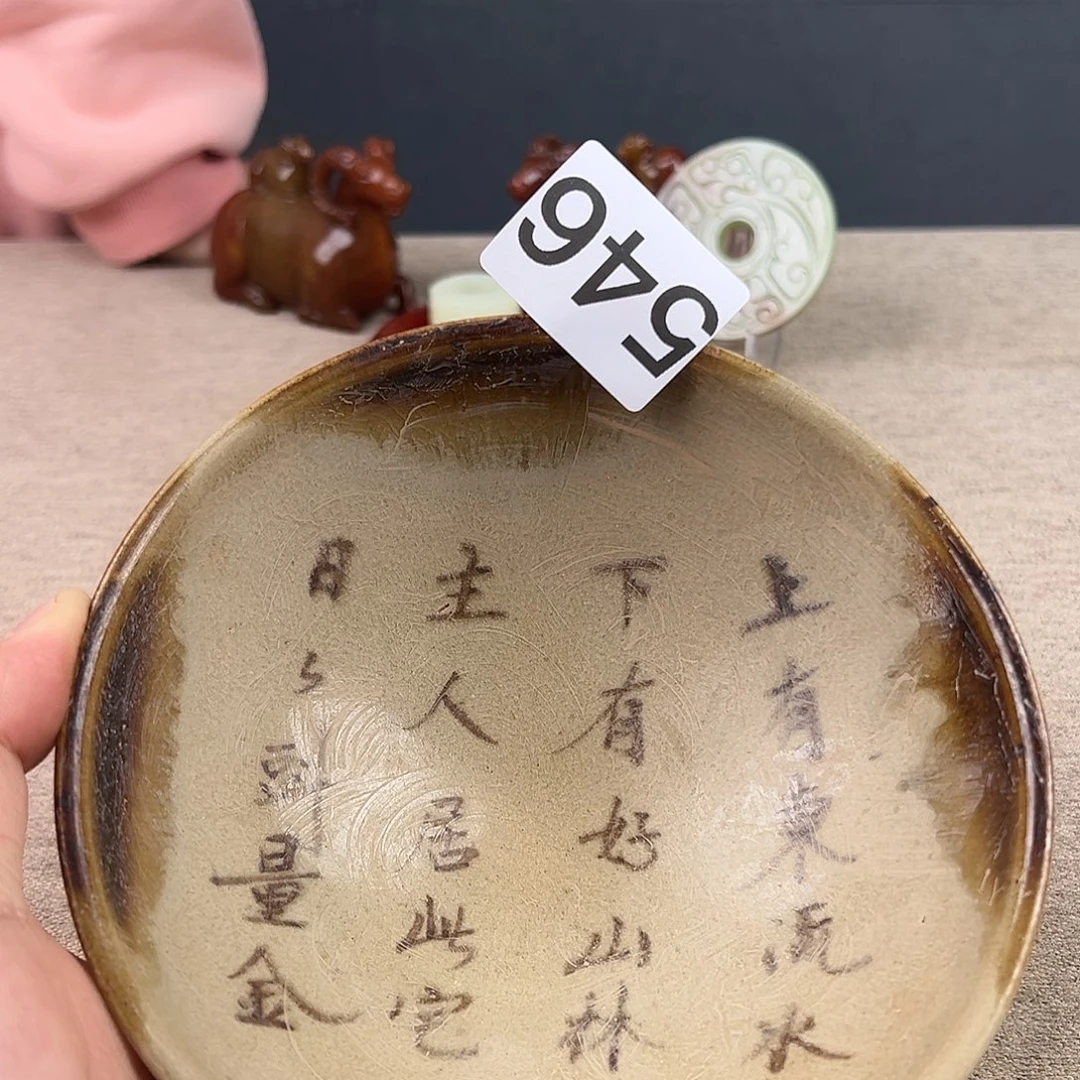 546
上有東流水
下有好山林
主人居此宅
日々量金